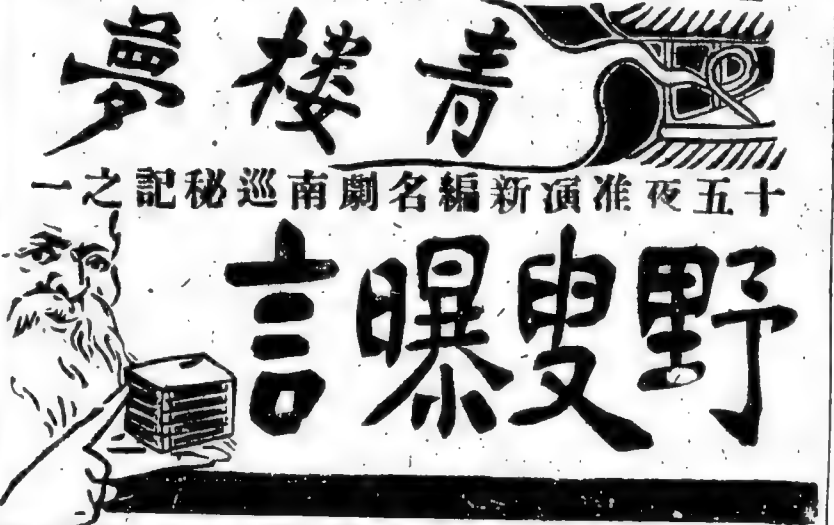 青樓夢
十五夜准演新編名劇南巡秘記之一
野叟曝言